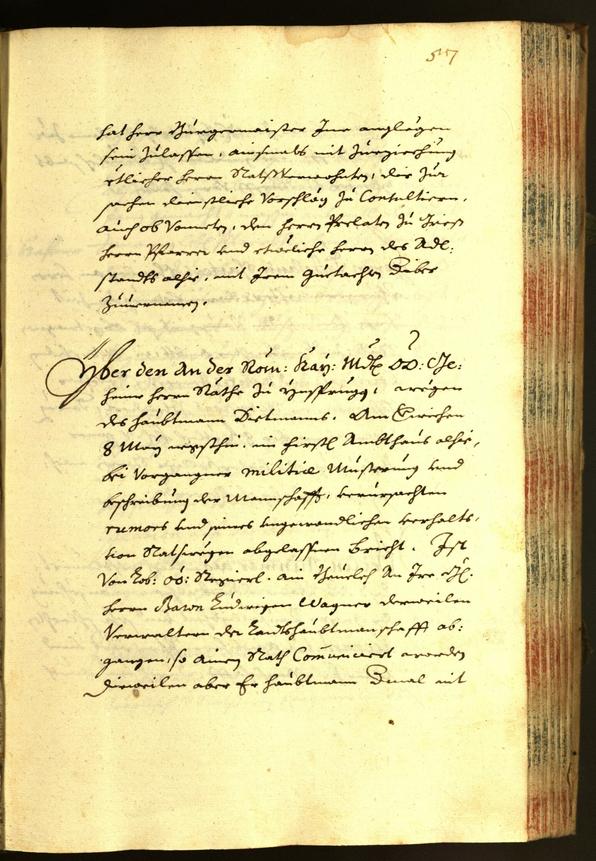 57
hat herr Burgermaister Ime anglegen
sein zulassen, ainsmals mit zueziechung
etlicher herrn Ratsverwohnten, die zur
sachen dienstliche Vorschläg zu Consultiern,
auch ob Vonneten, den herrn Prelaten zu Griess
herrn Pfarrer und etweliche herrn des Adl:
standts alhie, mit Irem guetachten
zuuernemen.
Yber den An der Röm: Kay: Mtt: OÖ: Ge:
heime herrn Räthe zu Ynsprugg, wegen
des haubtmann Dietmanns. Am
8 May negsthin, im fürstl Ambthaus alhie,
bei Vorgangner militiæ Musterung und
beschreibung der Mannschafft, verursachten
rumors und seines ungewendlichen verhalts,
von Ratswegen abgelassnen bricht. Ist
Von Lob: OÖ: Regierl: ain An Ire
herrn Baron Ludwigen Wagner derweilen
Verwaltern der Landtshaubtmanschafft ab:
gangen, so ainem Rath Comuniciert worden
Dieweilen aber Er haubtmann mit